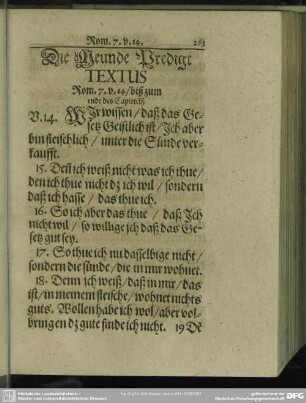 Rom. 7. v. 14. 263
Die Neunde Predigt
TEXTUS
Rom. 7. v. 14/ biß zum
ende des Capittels
V. 14. WIr wissen / daß das Ge-
setz Geistlich ist / Ich aber
bin fleischlich / unter die Sünde ver-
kaufft.
15. Deñ ich weiß nicht was ich thue/
den ich thue nicht dz ich wil / sondern
daß ich hasse / das thue ich.
16. So ich aber das thue / daß Ich
nicht wil / so willige ich daß das Ge-
setz gut sey.
17. So thue ich nu dasselbige nicht /
sondern die sünde / die in mir wohnet.
18. Denn ich weiß / daß in mir / das
ist / in meinem fleische / wohnet nichts
guts. Wollen habe ich wol / aber vol-
bringen dz gute finde ich nicht. 19 Dẽ